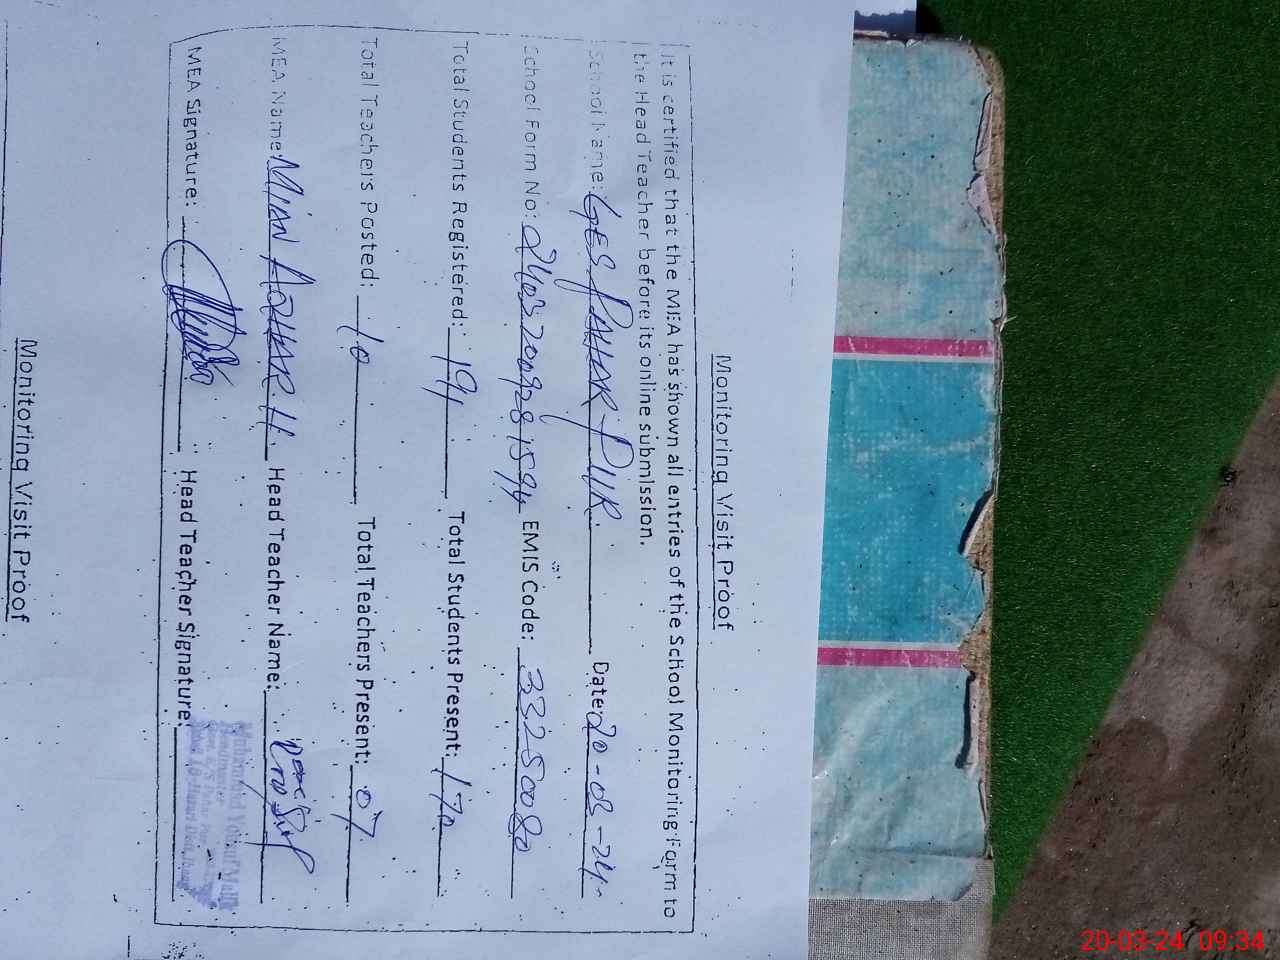 Monitoring Visit Proof
It is certified that the MEA has shown all entries of the School Monitoring Form to
the Head Teacher before its online submission.
School Name: GES PAHAR PUR. Date: 20-03-24
School Form No: EMIS Code: 33250080
Total Students Registered: 191 Total Students Present: 170
Total Teachers Posted: 10 Total Teachers Present: 07
MEA Name: MIAN AZHAR H. Head Teacher Name:
MEA Signature: Head Teacher Signature:
Muhammad Yousuf
Headmaster
Monitoring Visit Proof
20-03-24 09:34